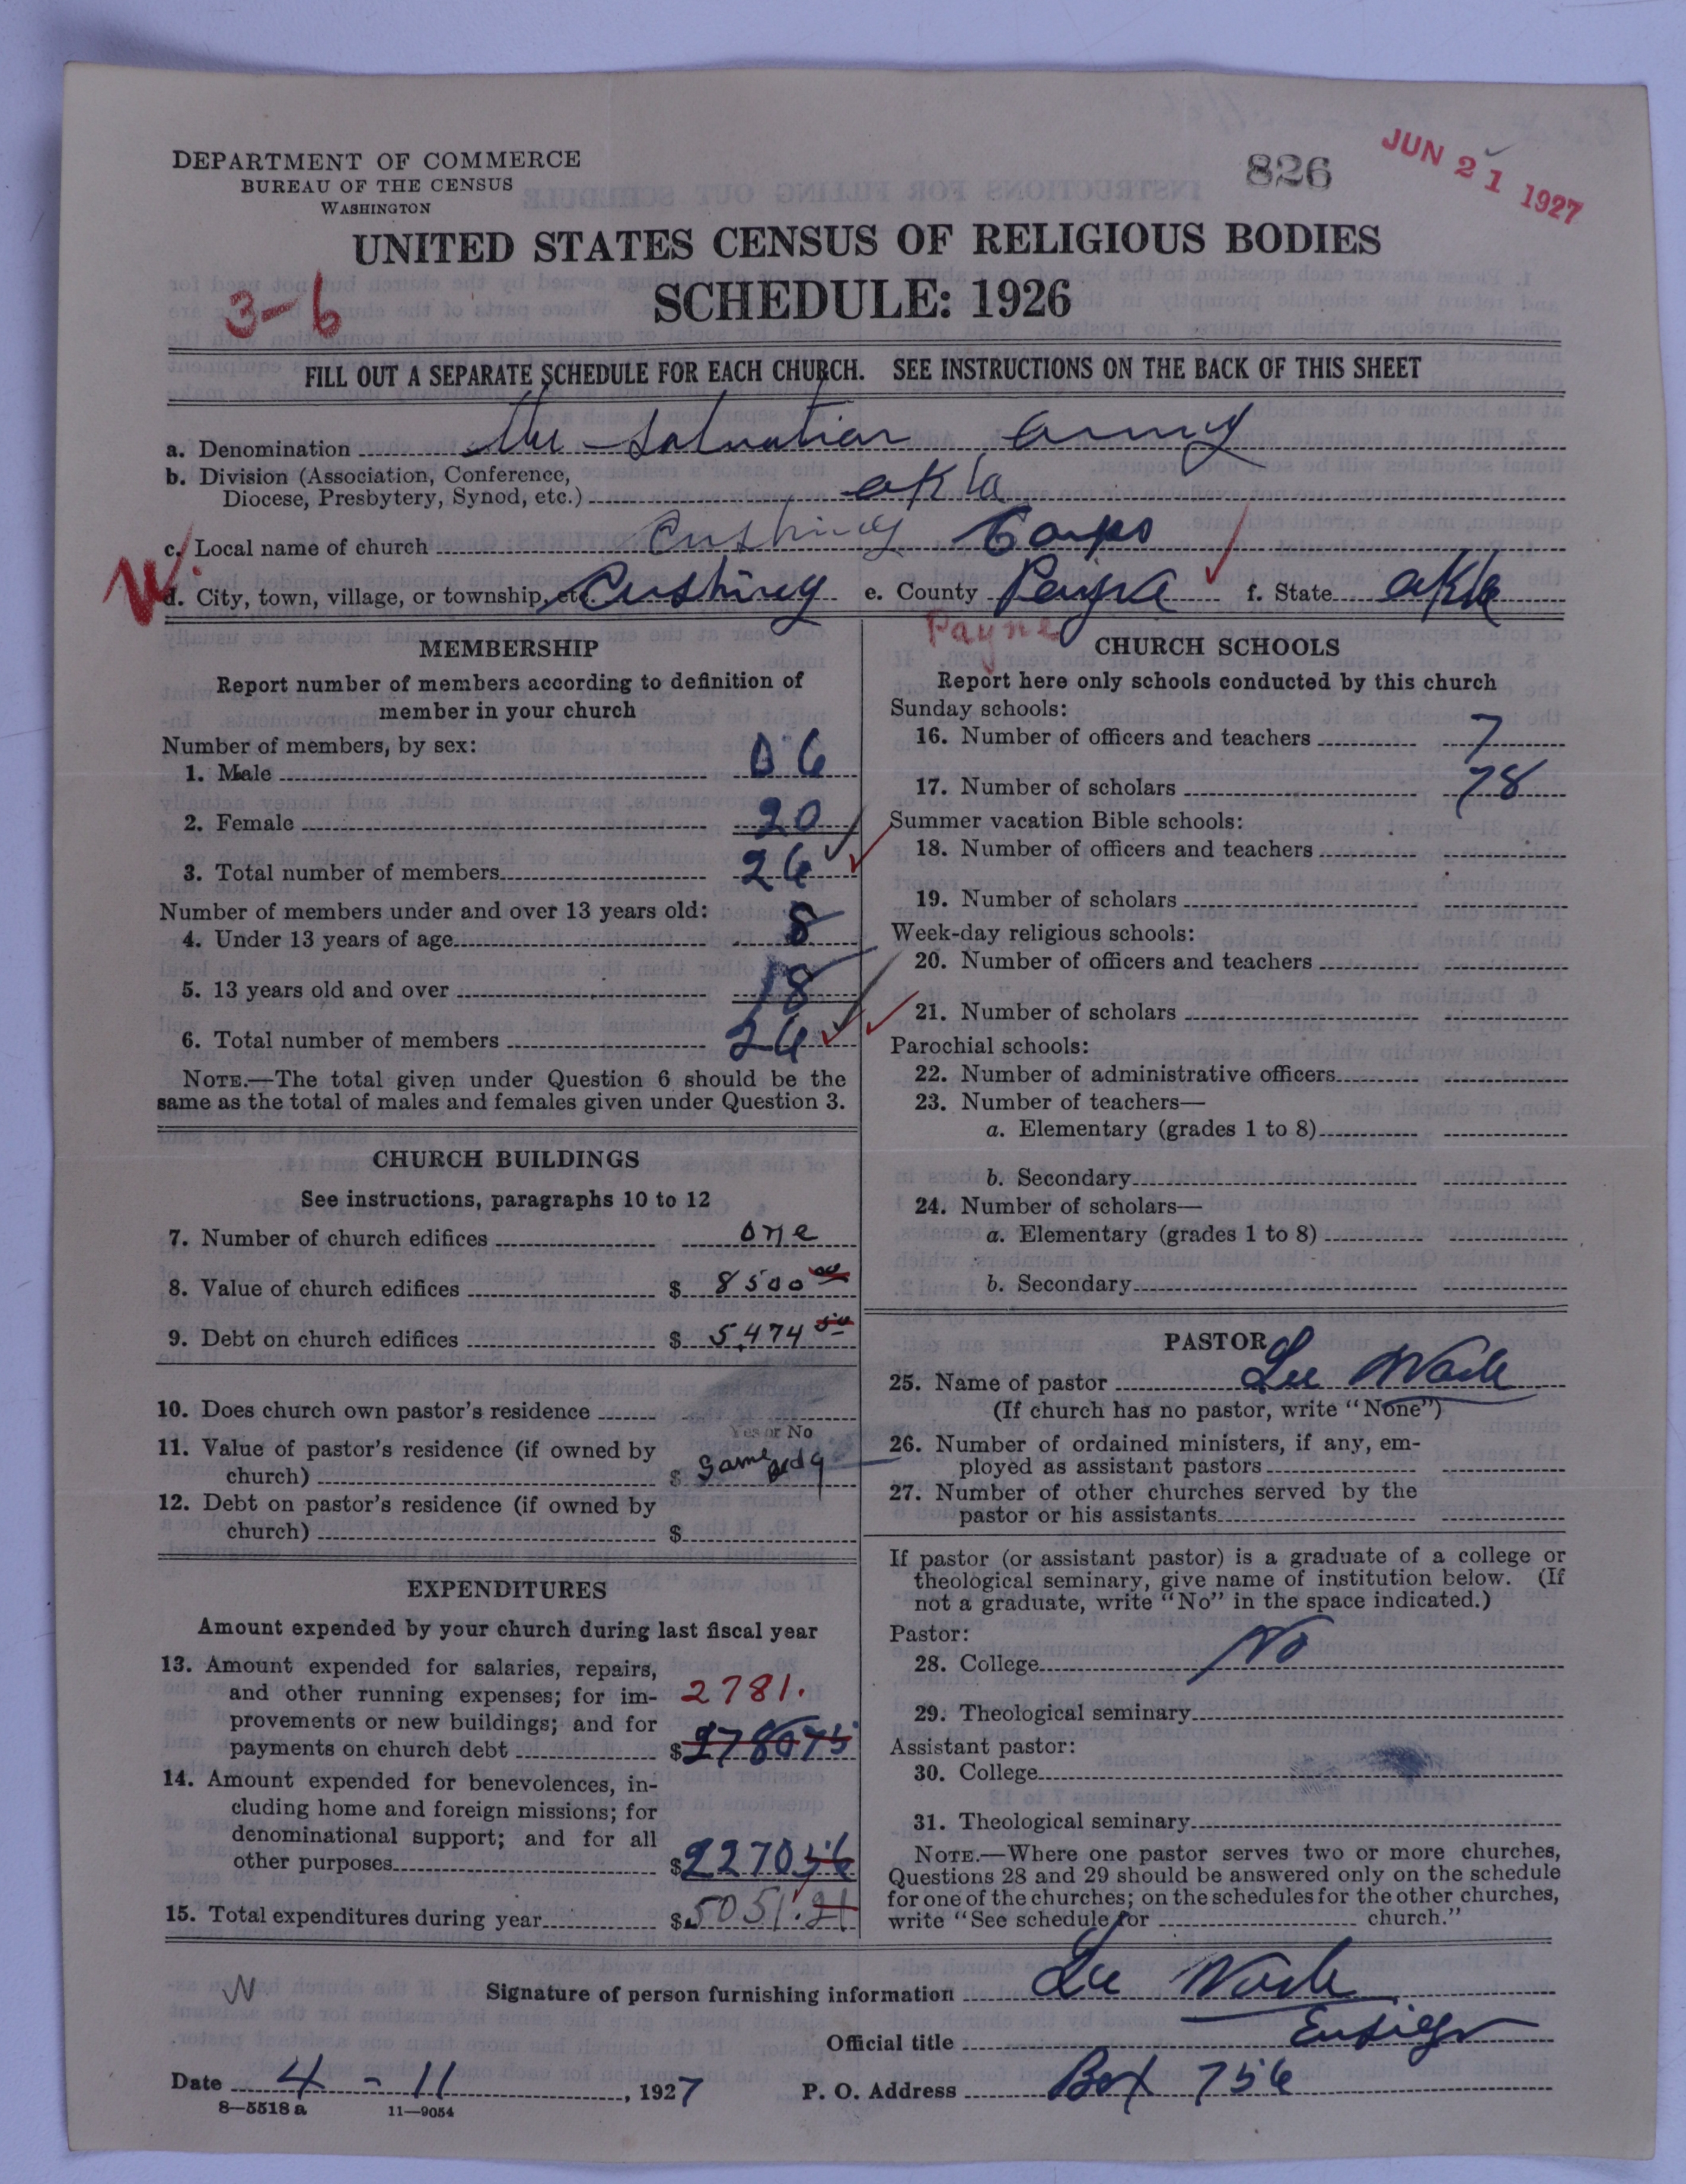 DEPARTMENT OF COMMERCE
BUREAU OF THE CENSUS
WASHINGTON
826
JUN 21 1927
UNITED STATES CENSUS OF RELIGIOUS BODIES
3-6
SCHEDULE: 1926
FILL OUT A SEPARATE SCHEDULE FOR EACH CHURCH. SEE INSTRUCTIONS ON THE BACK OF THIS SHEET
a. Denomination the Salvation Army
b. Division (Association, Conference,
Diocese, Presbytery, Synod, etc.) okla
c. Local name of church Cushing Corps
W.
d. City, town, village, or township, etc. Cushing e. County Payne f. State okla
Payne
MEMBERSHIP
Report number of members according to definition of
member in your church
Number of members, by sex:
1. Male 06
2. Female 20
3. Total number of members 26
Number of members under and over 13 years old:
4. Under 13 years of age 8
5. 13 years old and over 18
6. Total number of members 26
NOTE.—The total given under Question 6 should be the
same as the total of males and females given under Question 3.
CHURCH BUILDINGS
See instructions, paragraphs 10 to 12
7. Number of church edifices one
8. Value of church edifices $ 8500 00
9. Debt on church edifices $ 5,474 50
10. Does church own pastor's residence
Yes or No
11. Value of pastor's residence (if owned by
church) $ Same bldg
12. Debt on pastor's residence (if owned by
church) $
EXPENDITURES
Amount expended by your church during last fiscal year
13. Amount expended for salaries, repairs,
and other running expenses; for im- 2781.
provements or new buildings; and for
payments on church debt $278075
14. Amount expended for benevolences, in-
cluding home and foreign missions; for
denominational support; and for all
other purposes $227056
15. Total expenditures during year $5051.21
CHURCH SCHOOLS
Report here only schools conducted by this church
Sunday schools:
16. Number of officers and teachers 7
17. Number of scholars 78
Summer vacation Bible schools:
18. Number of officers and teachers
19. Number of scholars
Week-day religious schools:
20. Number of officers and teachers
21. Number of scholars
Parochial schools:
22. Number of administrative officers
23. Number of teachers—
a. Elementary (grades 1 to 8)
b. Secondary
24. Number of scholars—
a. Elementary (grades 1 to 8)
b. Secondary
PASTOR
25. Name of pastor Lee Wade
(If church has no pastor, write "None")
26. Number of ordained ministers, if any, em-
ployed as assistant pastors
27. Number of other churches served by the
pastor or his assistants
If pastor (or assistant pastor) is a graduate of a college or
theological seminary, give name of institution below. (If
not a graduate, write "No" in the space indicated.)
Pastor:
28. College No
29. Theological seminary
Assistant pastor:
30. College
31. Theological seminary
NOTE.—Where one pastor serves two or more churches,
Questions 28 and 29 should be answered only on the schedule
for one of the churches; on the schedules for the other churches,
write "See schedule for church."
N
Signature of person furnishing information Lee Wade
Official title Ensign
Date 4 - 11, 1927 P. O. Address Box 756
8—5518 a 11—9054